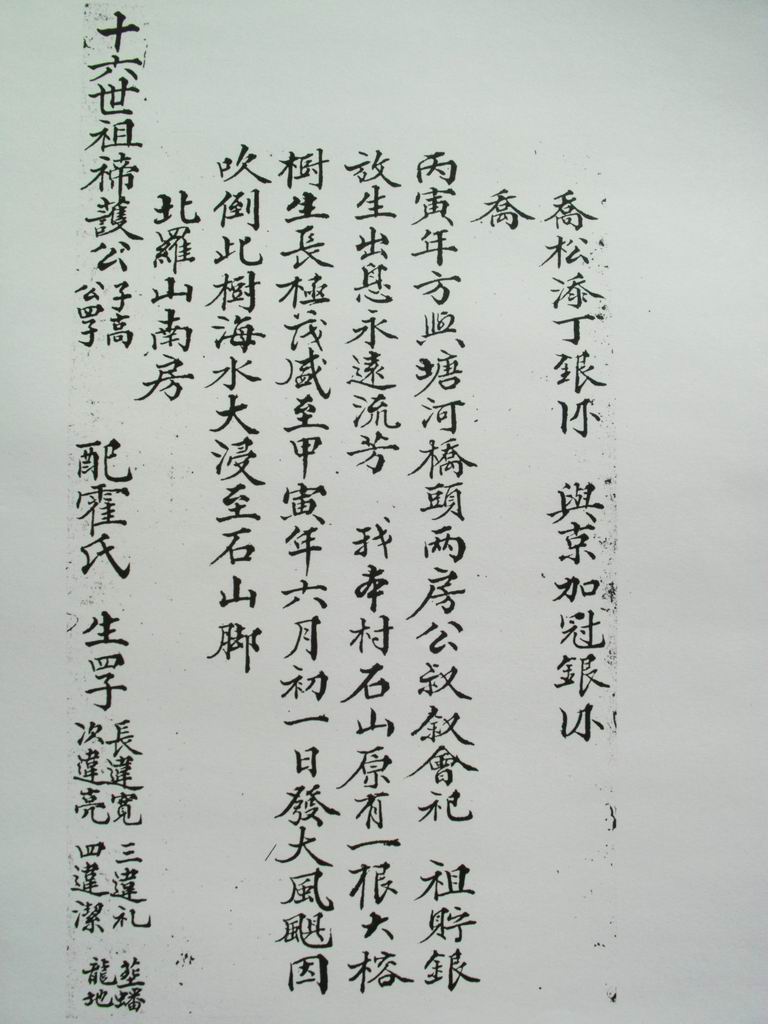 喬松添丁銀 與京加冠銀
喬
丙寅年方與塘河橋頭兩房公叔敘會祀 祖貯銀
放生出息永遠流芳 我本村石山原有一根大榕
樹生長極茂盛至甲寅年六月初一日發大風颶因
吹倒此樹海水大浸至石山腳
北羅山南房
十六世祖禘護公 子高公四子 配霍氏 生四子 長違寬 次違亮 三違礼 四違潔 葬蟠龍地